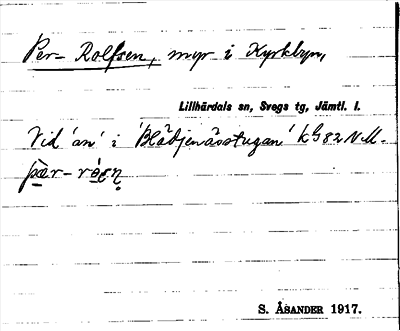 Per-Rolfsen, myr i Kyrkbyn,
Lillhärdals sn, Svegs tg, Jämtl. l.
Vid 'an' i 'Blädjenässtugan' kG82NM.
pær-
S. ÅSANDER 1917.